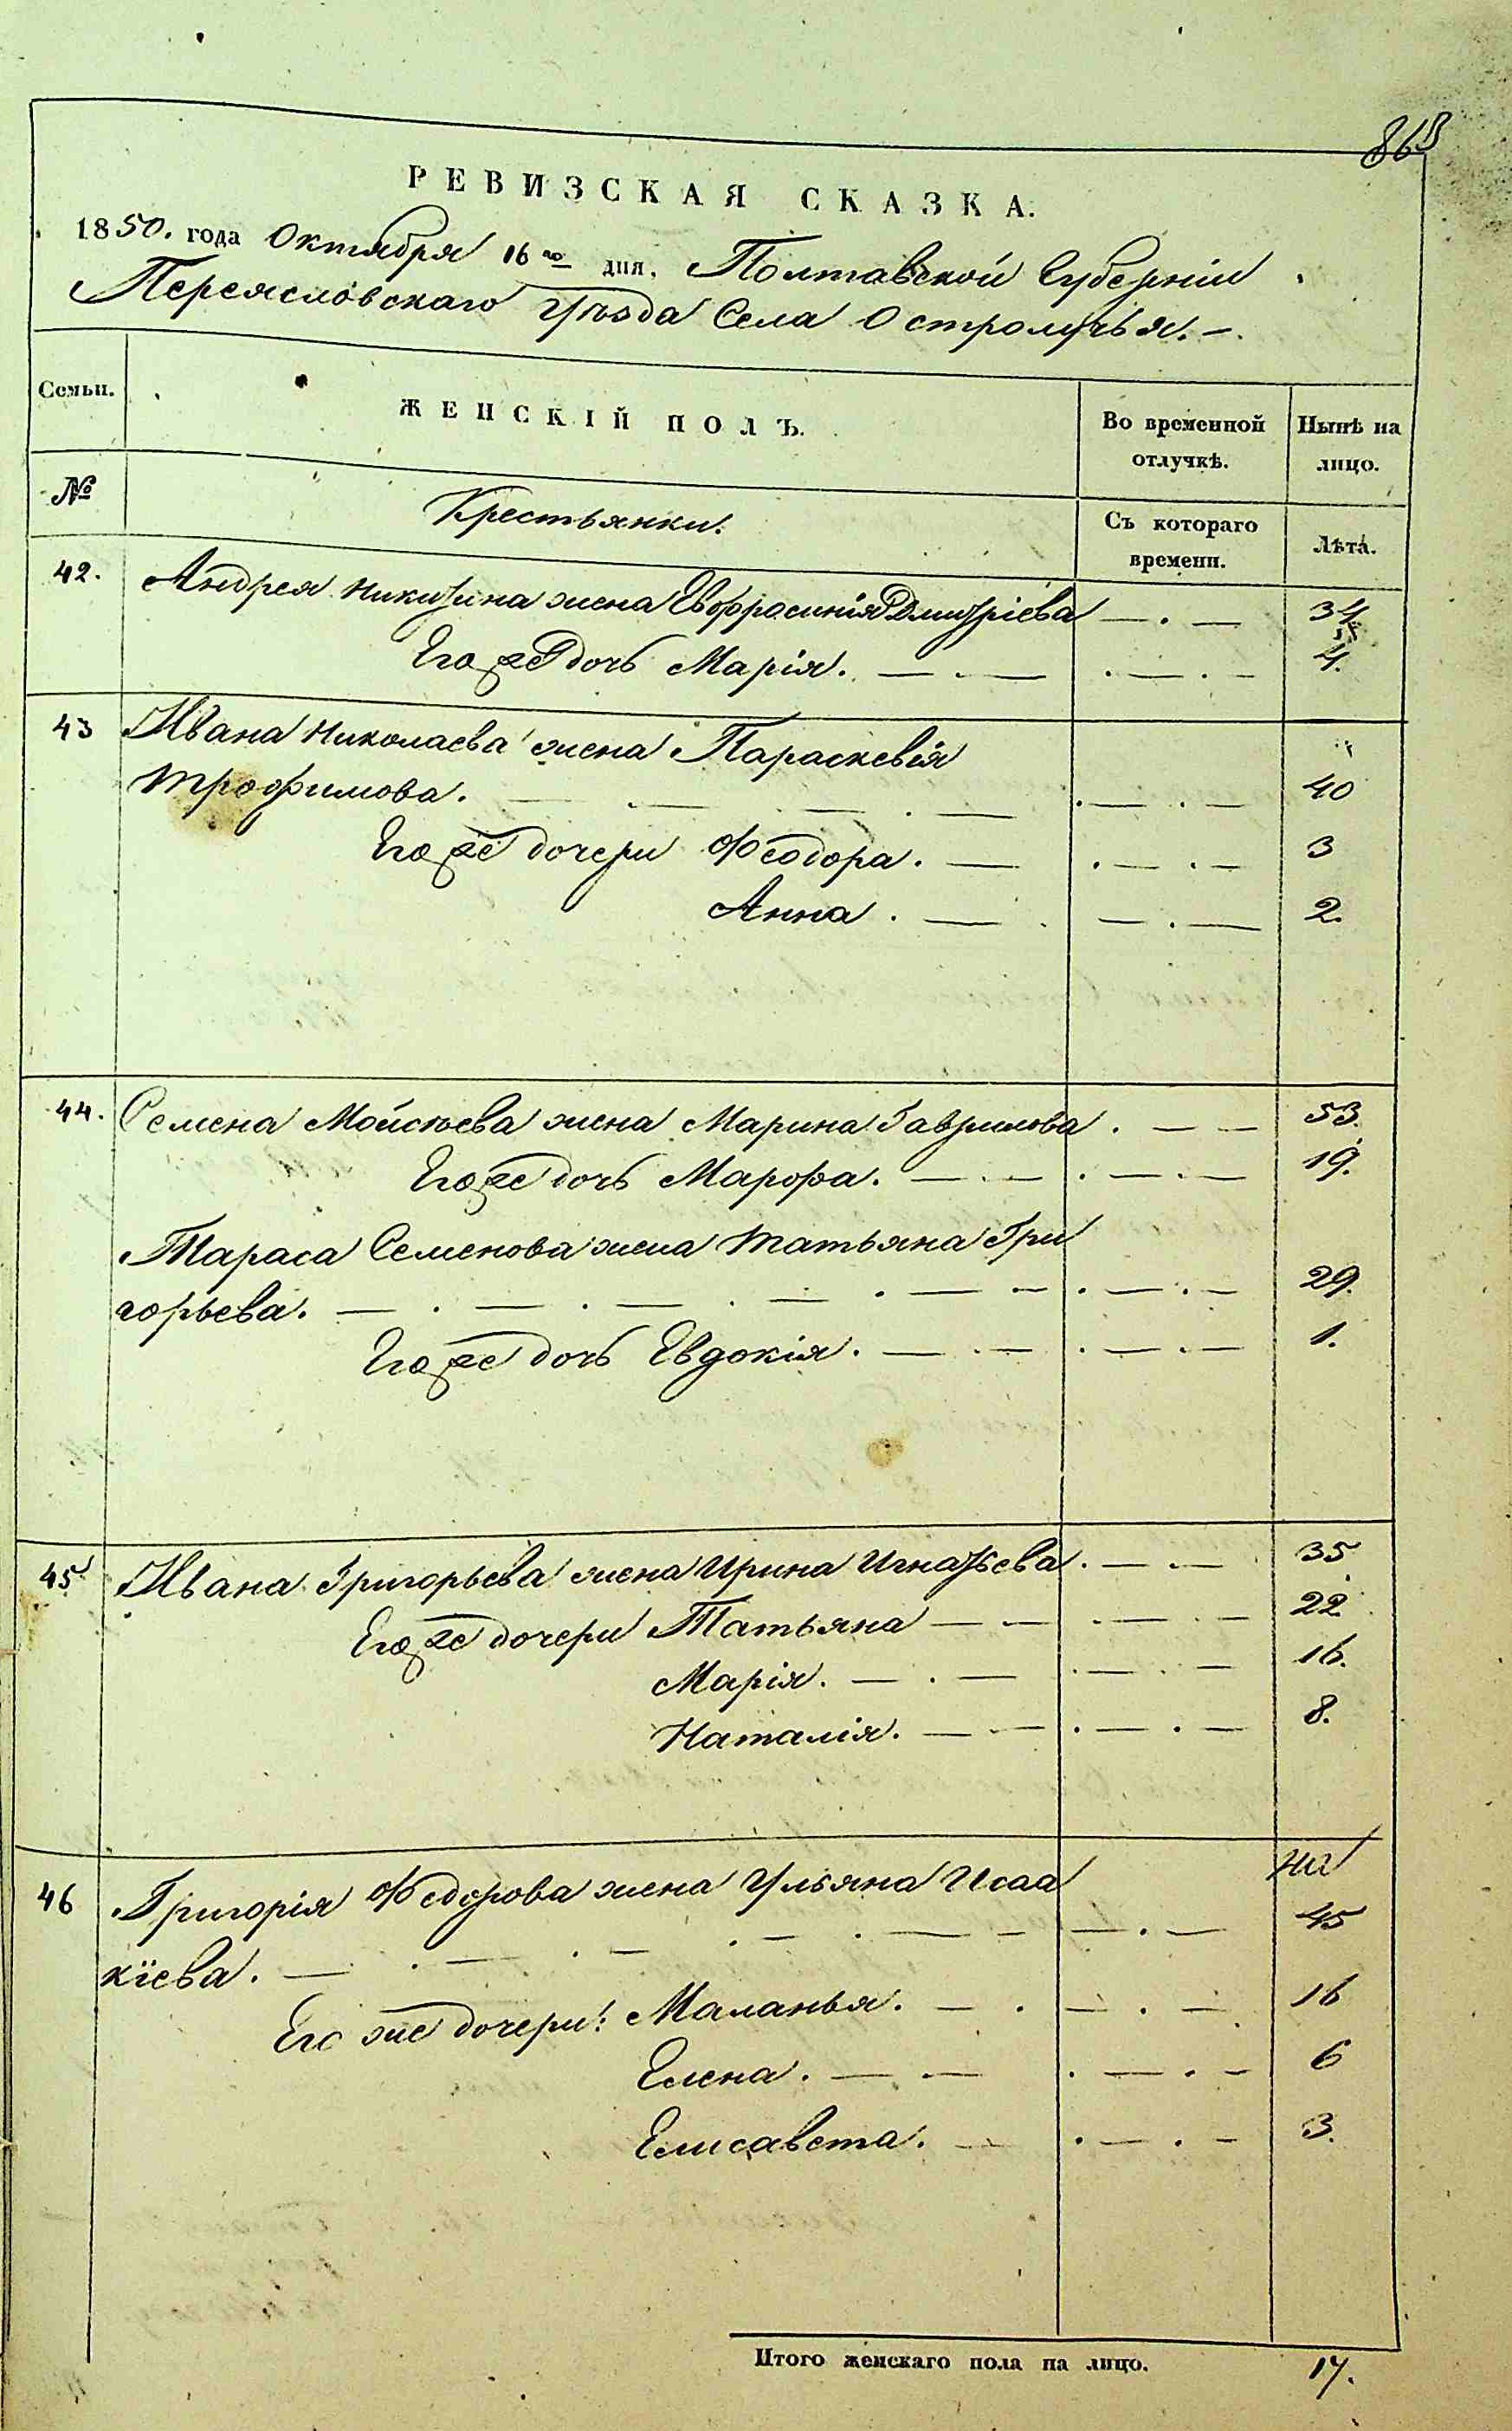 РЕВИЗСКАЯ СКАЗКА.
1850. года Октября 16го дня. Полтавской Губерніи
Переясловскаго Уѣзда Села Остролучья.
Семьи. ЖЕНСКІЙ ПОЛЪ. Во временной отлучкѣ. Нынѣ на лицо.
№ Крестьянки. Съ котораго времени. Лѣта.
42. Андрея Никитина жена Евфросинія Дмитріева 34
Его же дочь Марія. 4.
43 Ивана Николаева жена Параскевія
Трофимова. 40
Его же дочери Феодора. 3
Анна. 2.
44. Семена Мойсѣева жена Марина Гаврилова. 53.
Его же дочь Марфа. 19.
Тараса Семенова жена Татьяна Гри
горьева. 29.
Его же дочь Евдокія. 1.
45 Ивана Григорьева жена Ирина Игнатьева. 35
Его же дочери Татьяна 22
Марія. 16.
Наталія. 8.
46 Григорія Федорова жена Ульяна Исаа
кіева. 45
Его же дочери: Маланья. 16
Елена. 6
Елисавета. 3.
Итого женскаго пола на лицо. 17.